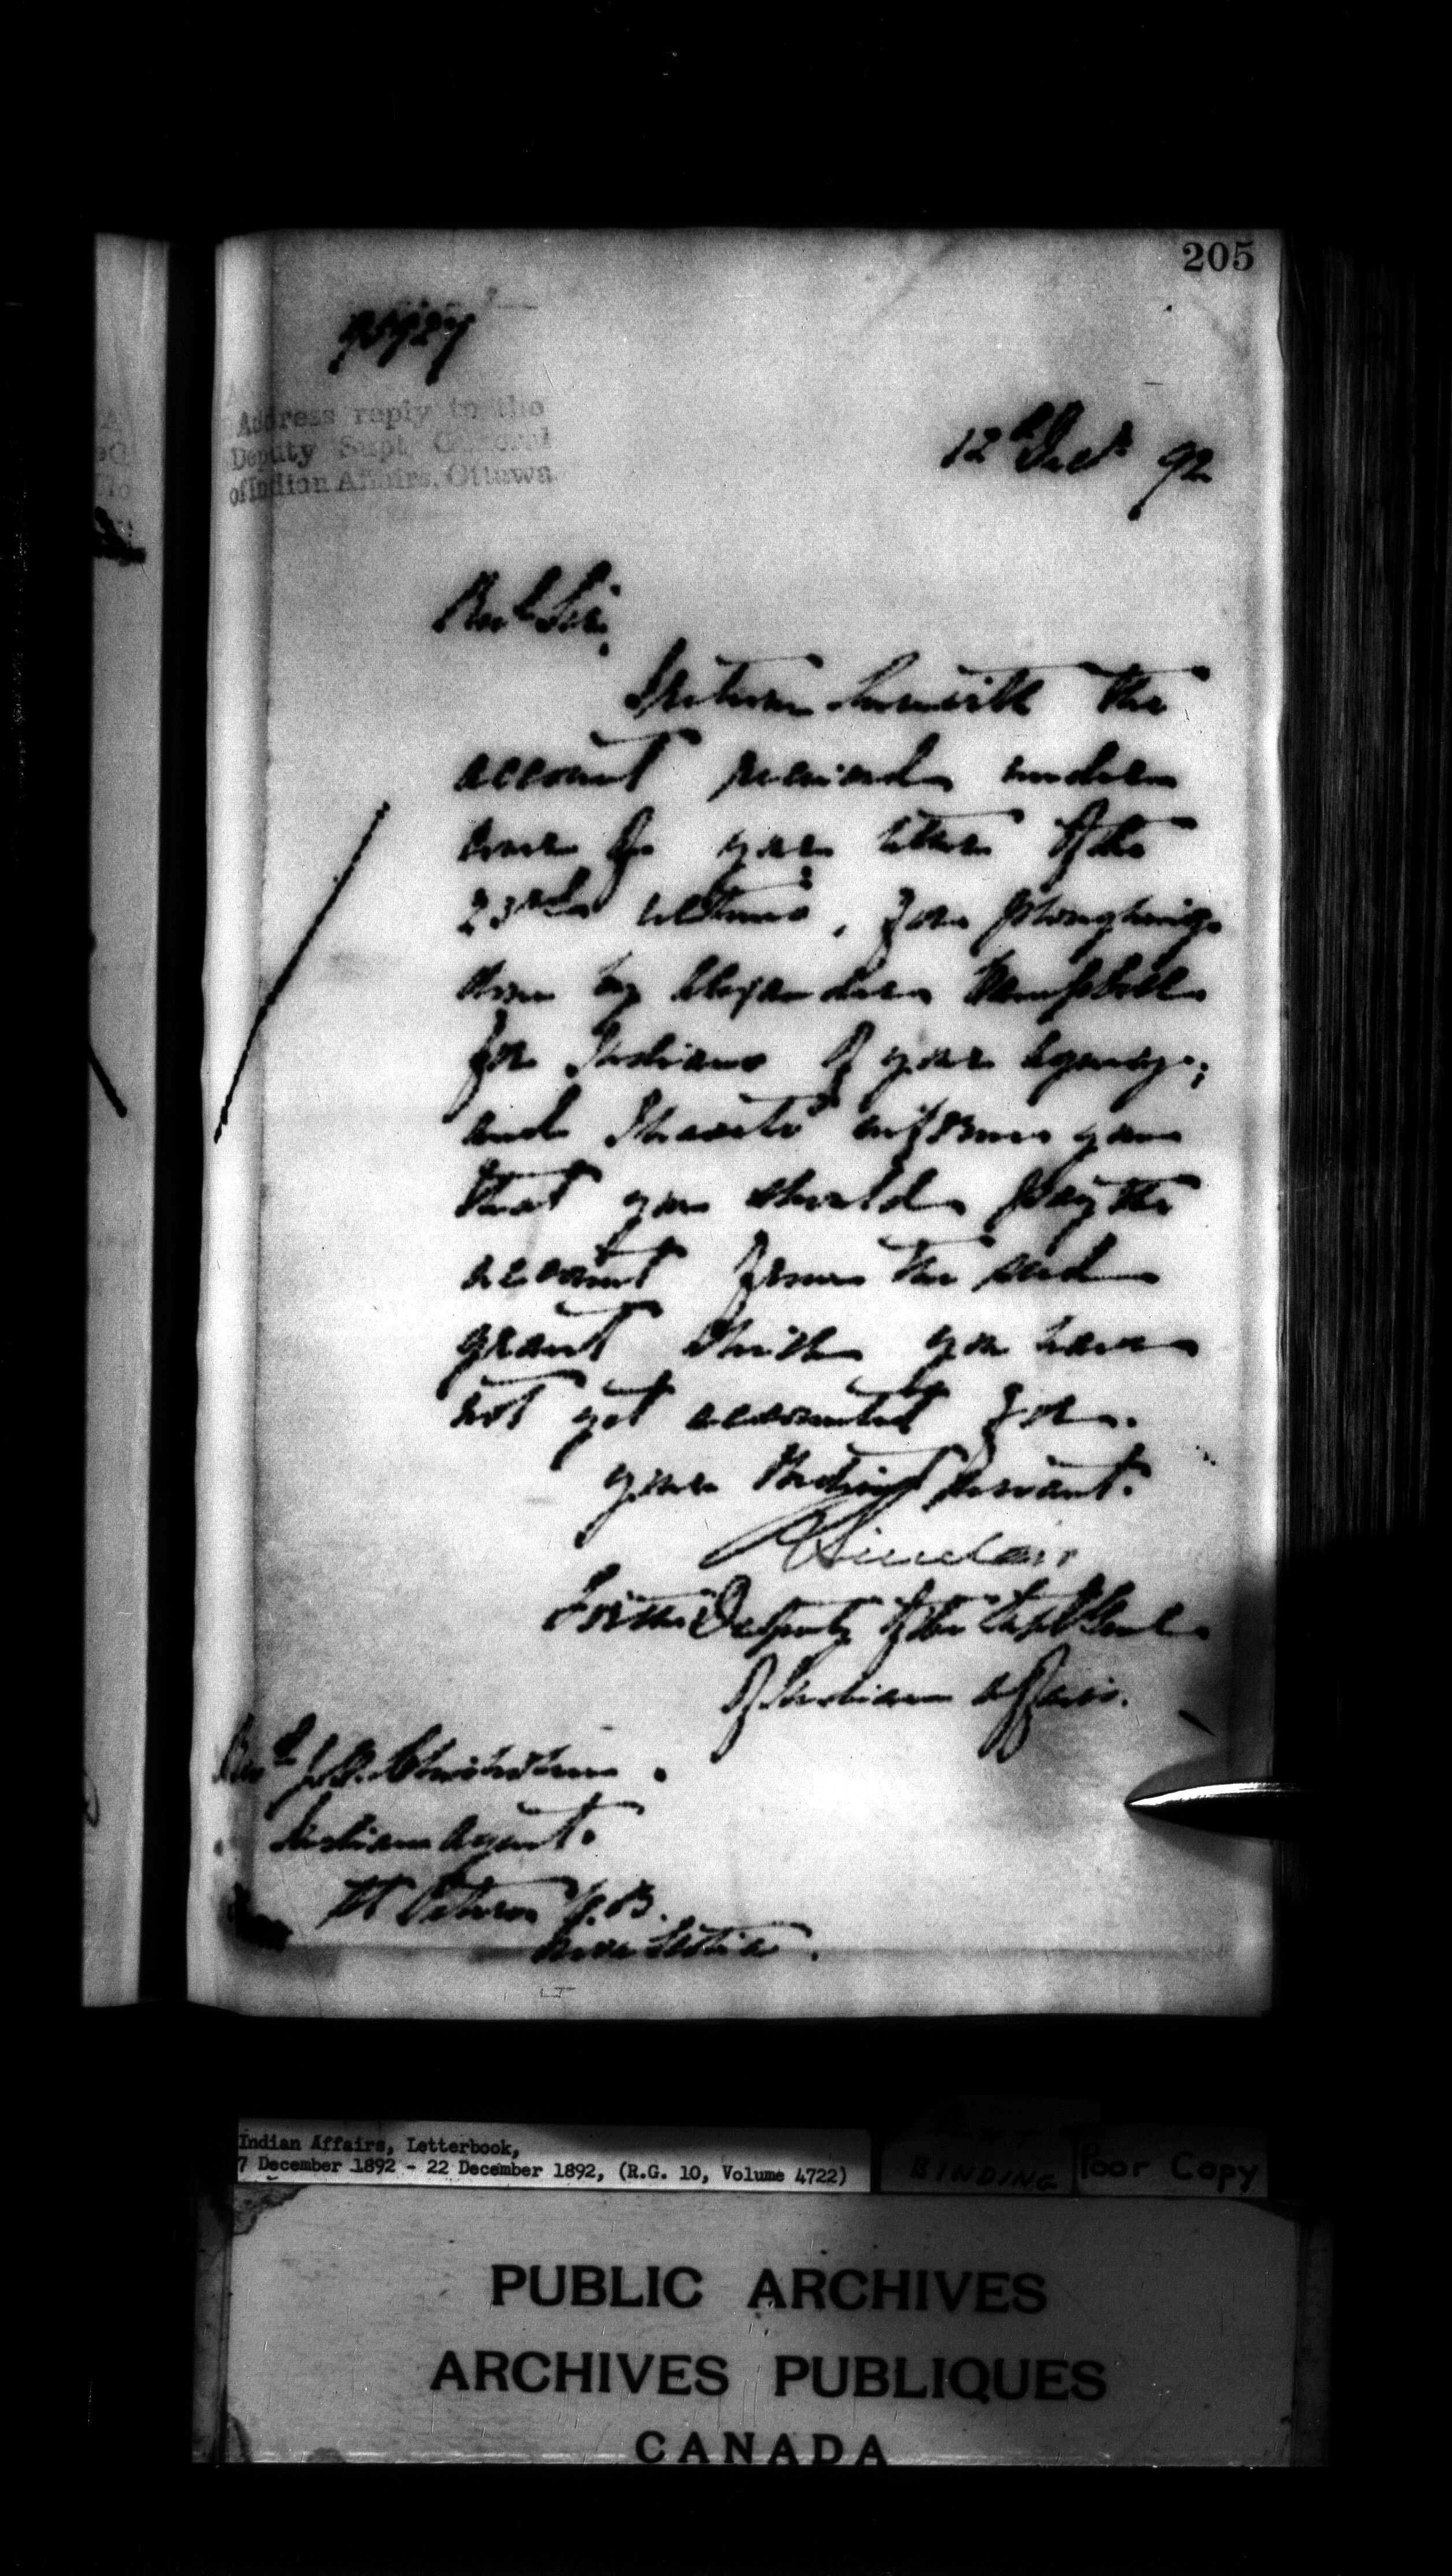 205
Address reply to the
Deputy Supt. General
of Indian Affairs, Ottawa
12th Dec. 92
Revd Sir,
I return herewith the
account received under
cover of your letter of the
23rd ultimo, for ploughing
done by Alexander Campbell
for Indians of your Agency;
and I have to inform you
that you should pay the
account from the seed
grant which you have
not yet accounted for.
Your obedient servant.
Sinclair
For the Deputy of the Supt Genl
of Indian Affairs.
Revd Chisholm.
Indian Agent.
St Peters C.B.
Nova Scotia.
Indian Affairs, Letterbook,
7 December 1892 - 22 December 1892, (R.G. 10, Volume 4722)
BINDING
Poor Copy
PUBLIC ARCHIVES
ARCHIVES PUBLIQUES
CANADA